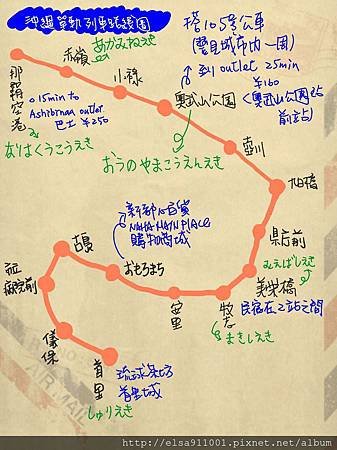 沖繩單軌列車路線圖
搭105号公車
(豐見城市内一周)
到 outlet 25min
¥160
(奥武山公園站
前站)
あかみねえき
赤嶺
小禄
奥武山公園
那霸空港
15min to
Ashibinaa outlet
巴士 ¥250
なはくうこうえき
おうのやまこうえんえき
壺川
旭橋
県庁前
みえばしえき
美栄橋
民宿在2站之間
新都心百貨
NAHA MAIN PLACE
購物商城
古島
おもろまち
安里
牧志
まきしえき
病院前
儀保
首里
しゅりえき
琉球茶坊
首里城
AIR MAIL
http://elsa911001.pixnet.net/album